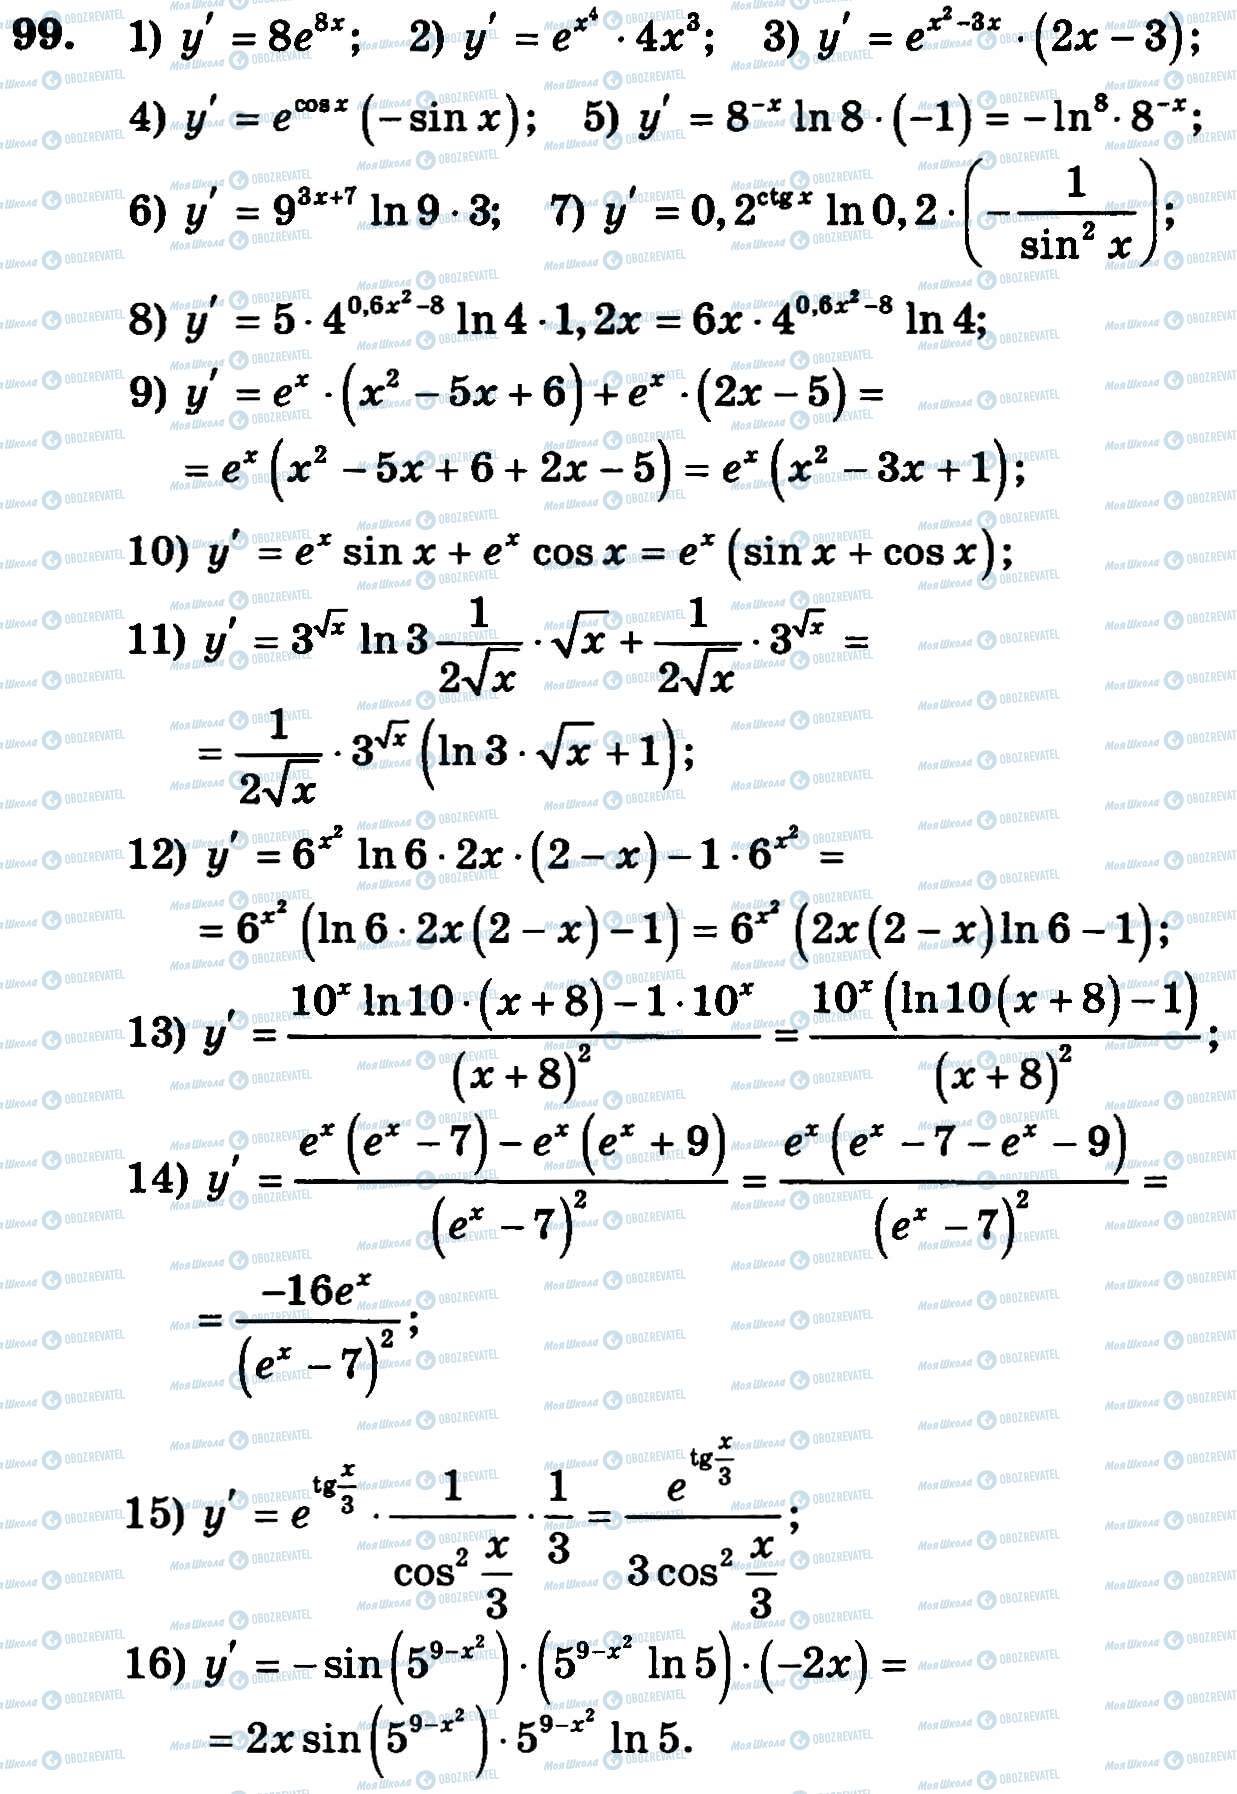 99. 1) y′ = 8e^{8x}; 2) y′ = e^{x^4} · 4x^3; 3) y′ = e^{x^2−3x} · (2x − 3);
4) y′ = e^{cos x} (− sin x); 5) y′ = 8^{−x} ln 8 · (−1) = − ln^8 · 8^{−x};
6) y′ = 9^{3x+7} ln 9 · 3; 7) y′ = 0,2^{ctg x} ln 0,2 · (− 1/(sin^2 x));
8) y′ = 5 · 4^{0,6x^2−8} ln 4 · 1,2x = 6x · 4^{0,6x^2−8} ln 4;
9) y′ = e^x · (x^2 − 5x + 6) + e^x · (2x − 5) =
= e^x (x^2 − 5x + 6 + 2x − 5) = e^x (x^2 − 3x + 1);
10) y′ = e^x sin x + e^x cos x = e^x (sin x + cos x);
11) y′ = 3^{√x} ln 3 1/(2√x) · √x + 1/(2√x) · 3^{√x} =
= 1/(2√x) · 3^{√x} (ln 3 · √x + 1);
12) y′ = 6^{x^2} ln 6 · 2x · (2 − x) − 1 · 6^{x^2} =
= 6^{x^2} (ln 6 · 2x (2 − x) − 1) = 6^{x^2} (2x (2 − x) ln 6 − 1);
13) y′ = (10^x ln 10 · (x + 8) − 1 · 10^x)/((x + 8)^2) = (10^x (ln 10 (x + 8) − 1))/((x + 8)^2);
14) y′ = (e^x (e^x − 7) − e^x (e^x + 9))/((e^x − 7)^2) = (e^x (e^x − 7 − e^x − 9))/((e^x − 7)^2) =
= (−16e^x)/((e^x − 7)^2);
15) y′ = e^{tg x/3} · 1/(cos^2 x/3) · 1/3 = e^{tg x/3}/(3 cos^2 x/3);
16) y′ = − sin (5^{9−x^2}) · (5^{9−x^2} ln 5) · (−2x) =
= 2x sin (5^{9−x^2}) · 5^{9−x^2} ln 5.
Моя Школа OBOZREVATEL